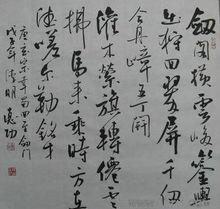 劍閣橫雲峻鑾輿
出狩回翠屏千仞
合丹嶂五丁開
灌木縈旗轉僊雲
拂馬來乘時方在
德嗟爾勒銘才
唐玄宗幸蜀回至劍門
清明